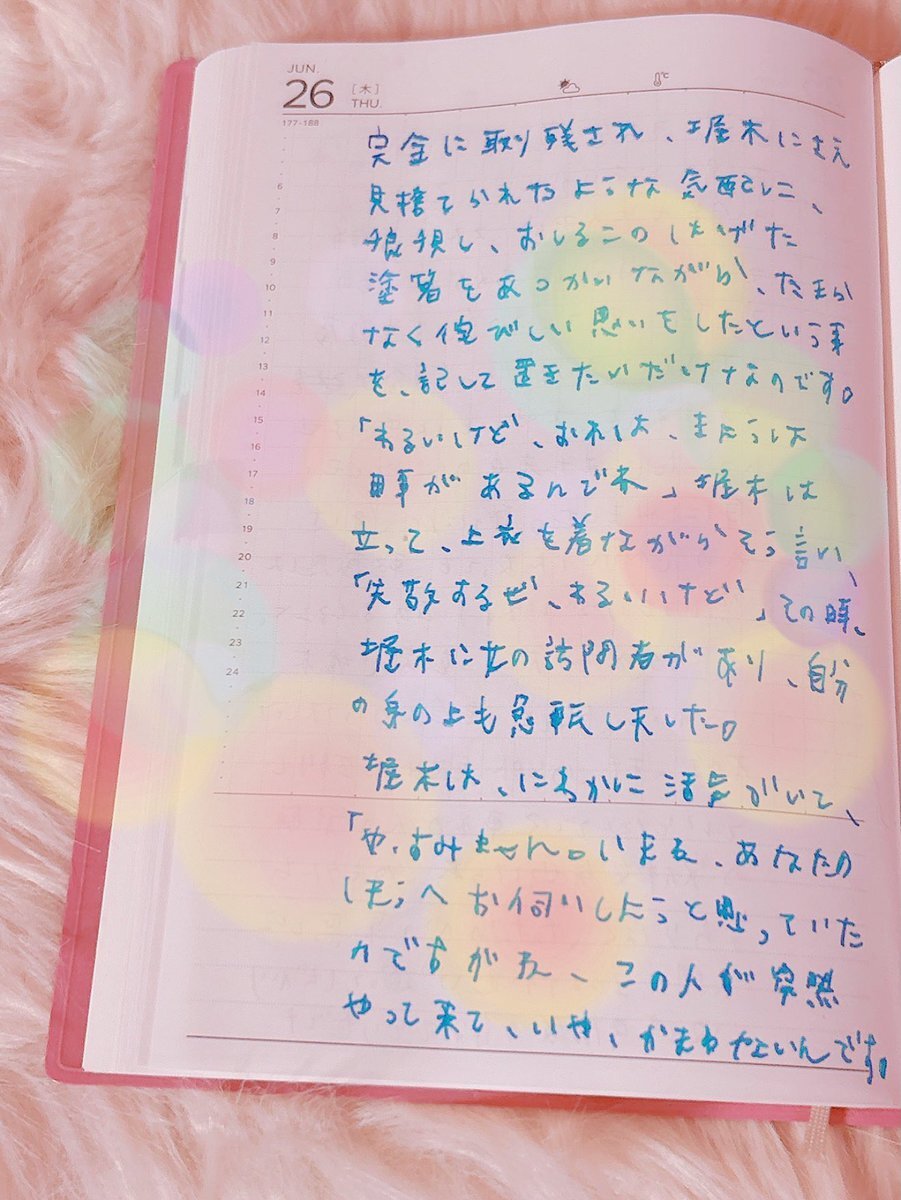 JUN.
26 [木] THU.
177-188
6
7
8
9
10
11
12
13
14
15
16
17
18
19
20
21
22
23
24
完全に取り残され、堀木にさえ
見捨てられたような気配に、
狼狽し、おしるこのはげた
塗箸をあつかいながら、たまら
なく侘びしい思いをしたという事
を、記して置きたいだけなのです。
「わるいけど、おれは、きょうは
用事があるんでね」堀木は
立って、上衣を着ながらそう言い、
「失敬するぜ、わるいけど」その時、
堀木に女の訪問者があり、自分
の身の上も急転しました。
堀木は、にわかに活気づいて、
「や、すみません。いまね、あなたの
ほうへお伺いしようと思っていた
のですがね、この人が突然
やって来て、いや、かまわないんです。